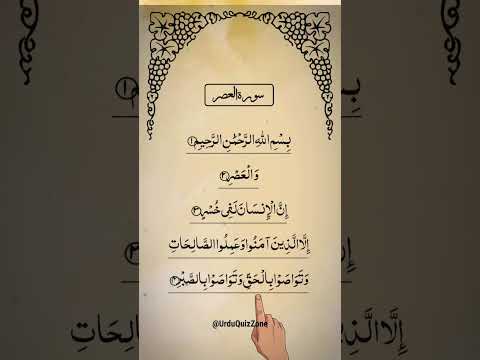 سورة العصر
بِسْمِ اللهِ الرَّحْمٰنِ الرَّحِيْمِ ١
وَالْعَصْرِ ٢
إِنَّ الْإِنْسَانَ لَفِي خُسْرٍ ٣
إِلَّا الَّذِينَ آمَنُوا وَعَمِلُوا الصَّالِحَاتِ
وَتَوَاصَوْا بِالْحَقِّ وَتَوَاصَوْا بِالصَّبْرِ ۴
@UrduQuizZone